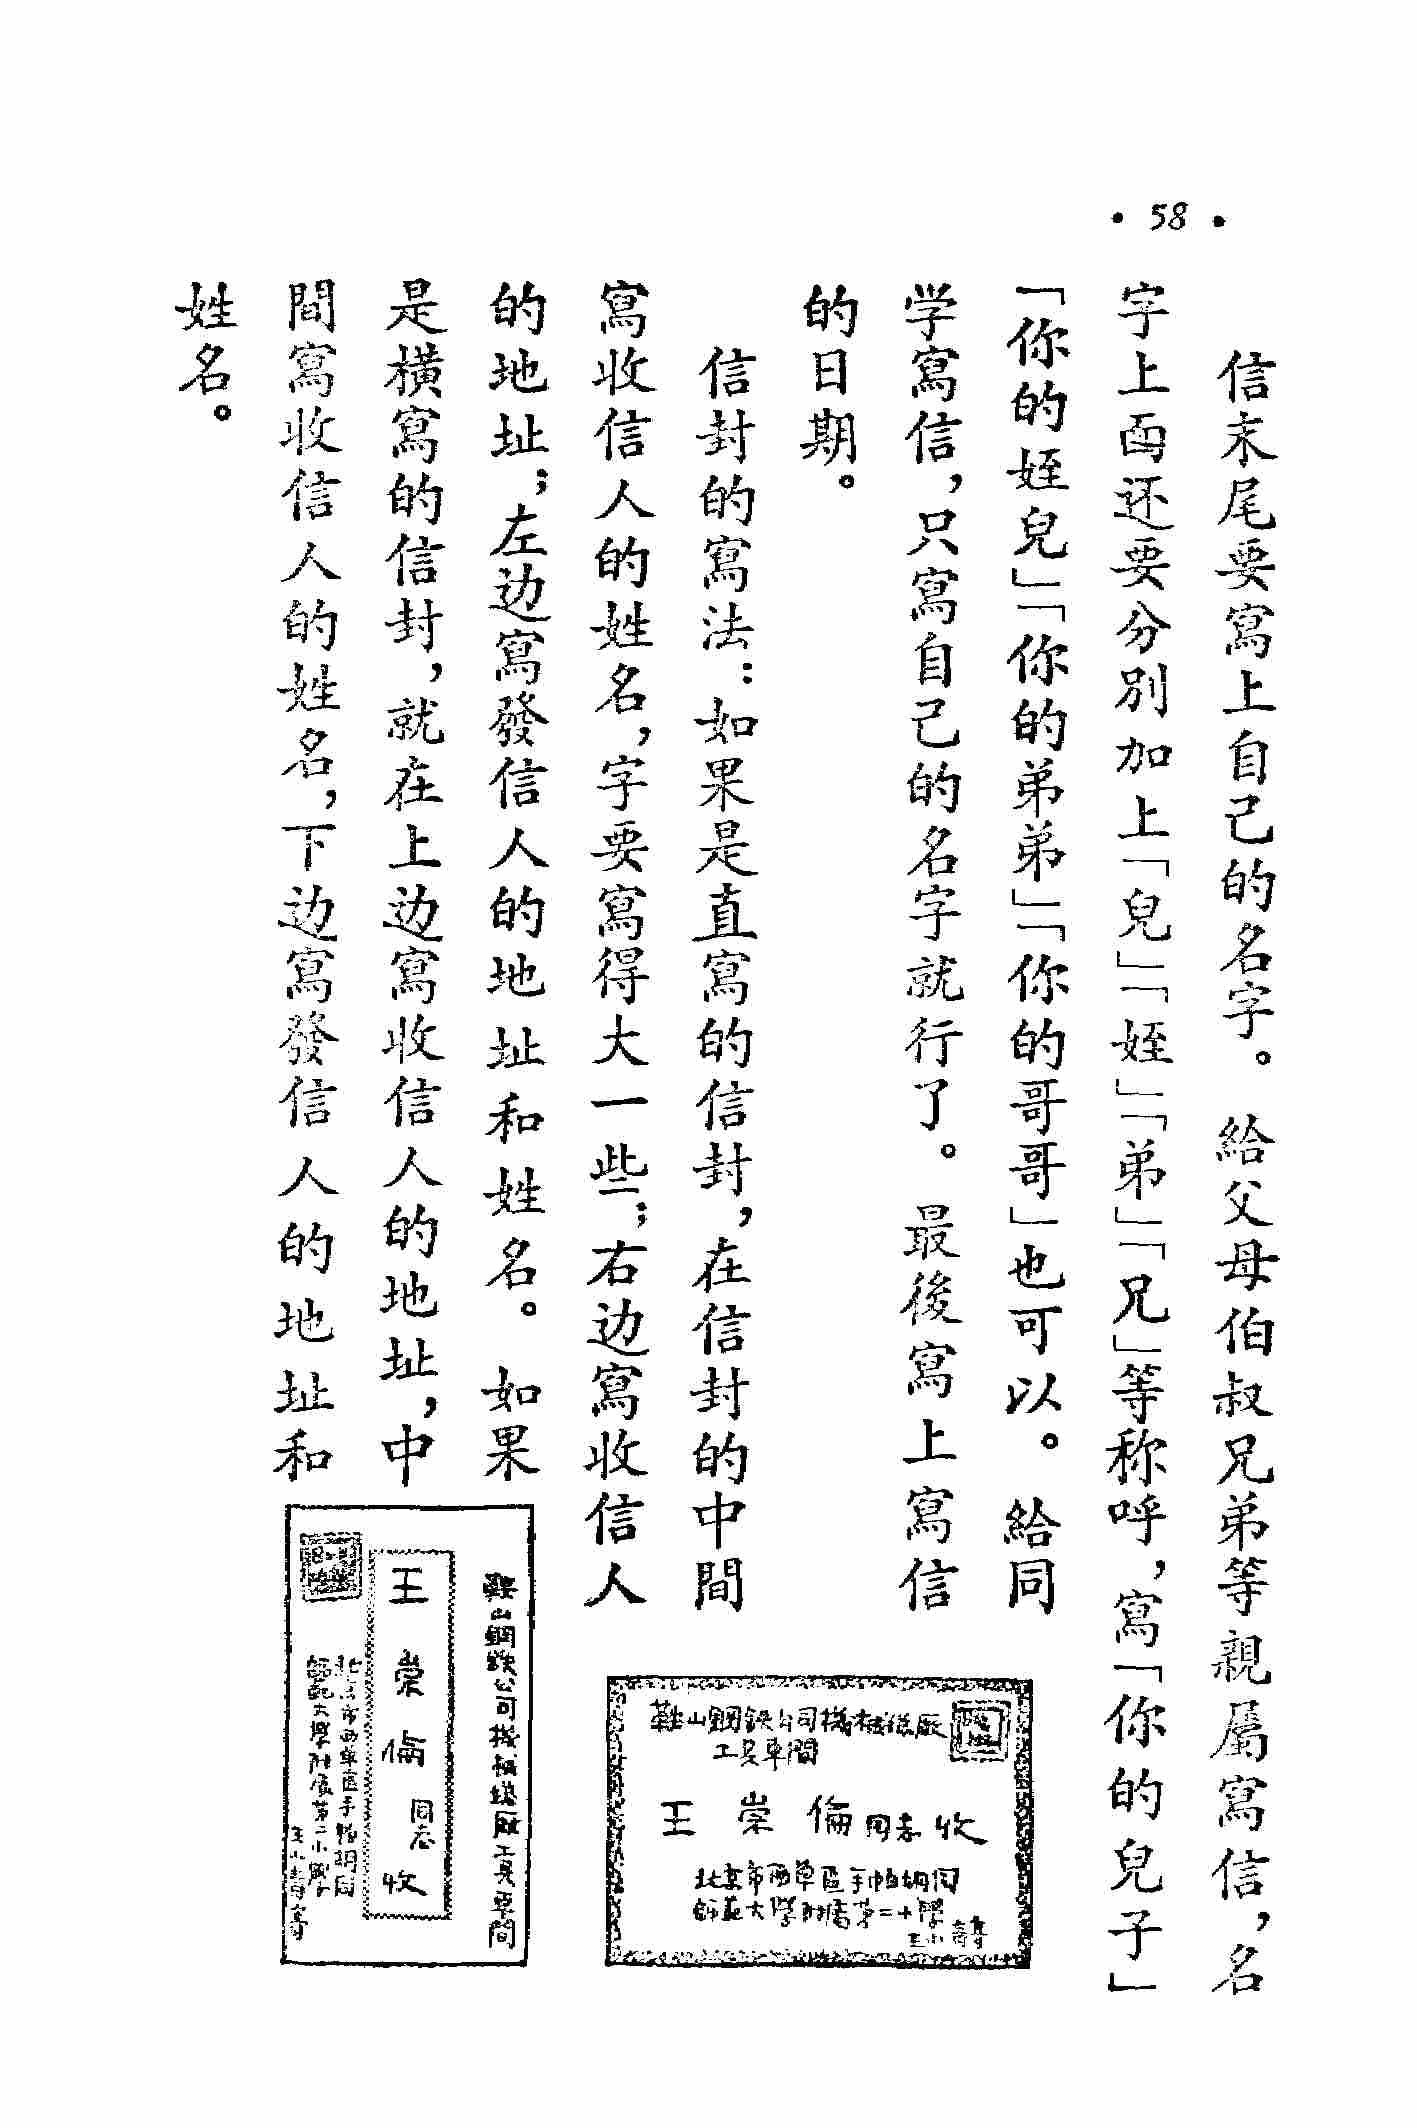 • 58 •
信末尾要寫上自己的名字。給父母伯叔兄弟等親屬寫信，名
字上面还要分別加上「兒」「姪」「弟」「兄」等称呼，寫「你的兒子」
「你的姪兒」「你的弟弟」「你的哥哥」也可以。給同
学寫信，只寫自己的名字就行了。最後寫上寫信
的日期。
信封的寫法：如果是直寫的信封，在信封的中間
寫收信人的姓名，字要寫得大一些；右边寫收信人
的地址；左边寫發信人的地址和姓名。如果
是橫寫的信封，就在上边寫收信人的地址，中
間寫收信人的姓名，下边寫發信人的地址和
姓名。
鞍山鋼鉄公司機械總厰
工具車間
王崇倫同志收
北京市西單區手帕胡同
師范大學附屬第二小學
王小壽
鞍山鋼鉄公司機械總厰工具車間
王崇倫同志收
北京市西單區手帕胡同
師范大學附屬第二小學
王小壽